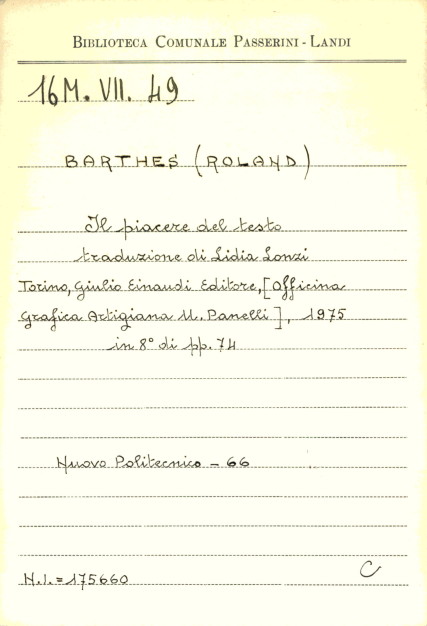 BIBLIOTECA COMUNALE PASSERINI - LANDI
16M. VII. 49
BARTHES (ROLAND)
Il piacere del testo
traduzione di Lidia Lonzi
Torino, Giulio Einaudi Editore, [Officina
Grafica Artigiana U. Panelli], 1975
in 8° di pp. 74
Nuovo Politecnico - 66
N.I. = 175660
C